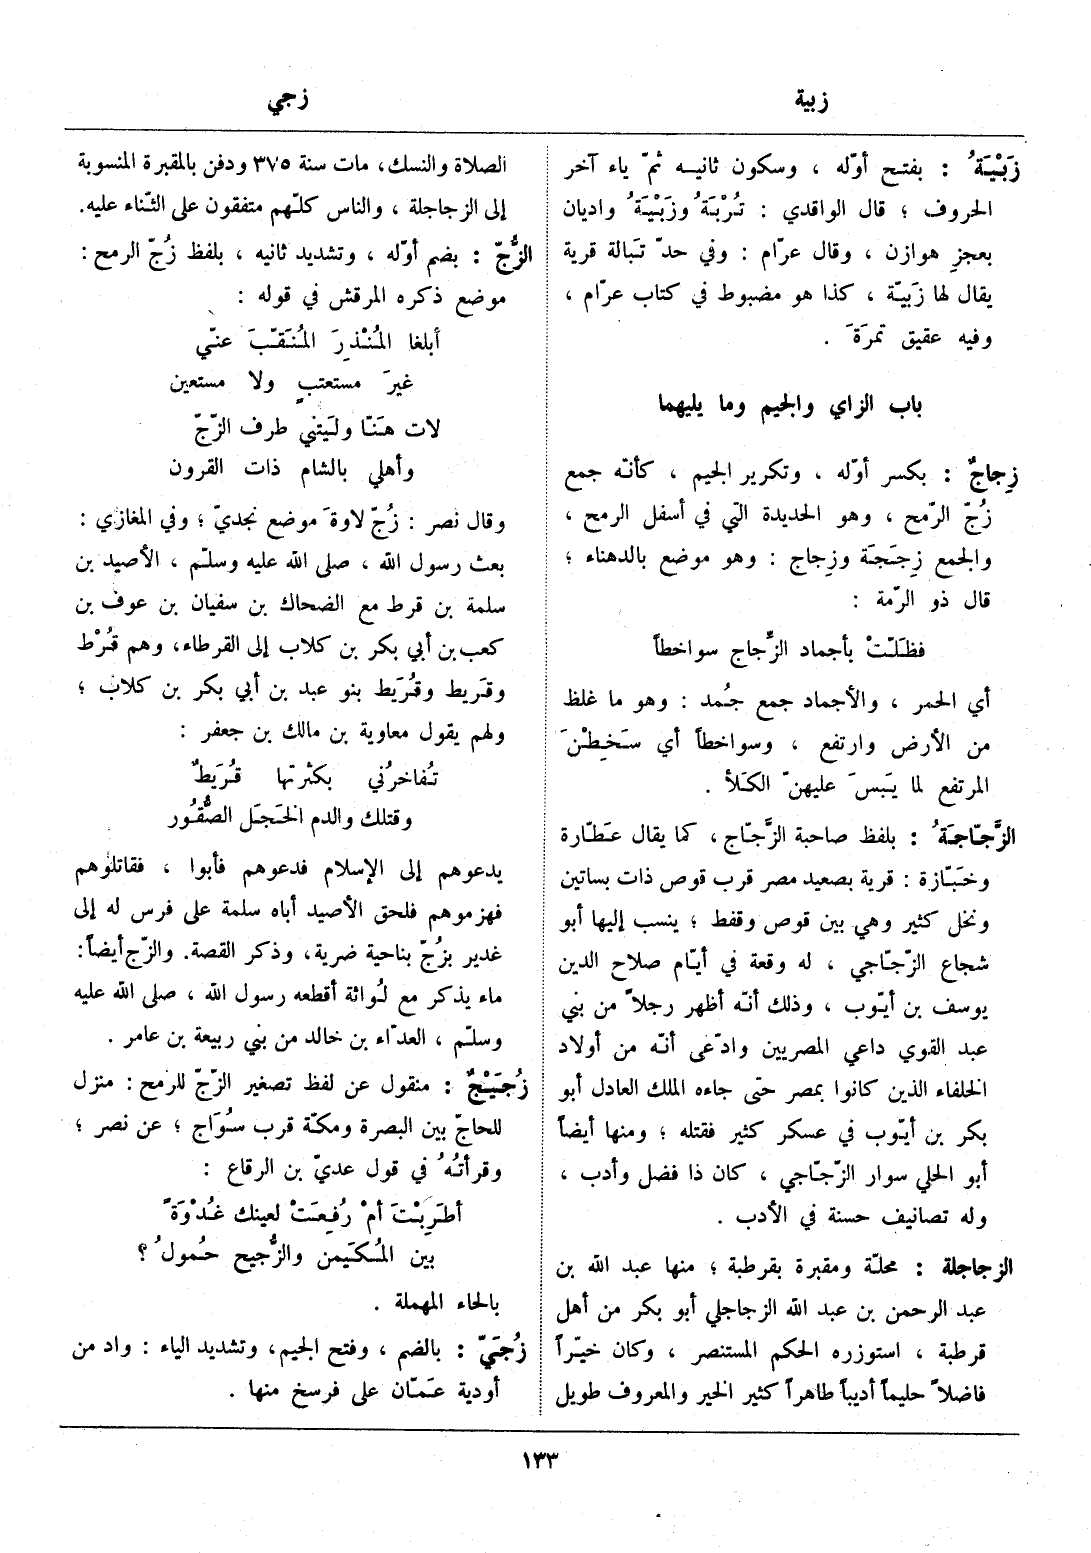 زبية
زجي
زَبْيَةُ : بفتح أوّله ، وسكون ثانيه ثمّ ياء آخر
الحروف ؛ قال الواقدي : تُرْبَةُ وزَبْيَةُ واديان
بعجز هوازن ، وقال عرّام : وفي حدّ تَبالة قرية
يقال لها زَبيَة ، كذا هو مضبوط في كتاب عرّام ،
وفيه عقيق تمرَةَ .
باب الزاي والجيم وما يليهما
زِجاجٌ : بكسر أوّله ، وتكرير الجيم ، كأنّه جمع
زُجّ الرّمح ، وهو الحديدة التي في أسفل الرمح ،
والجمع زِجَجَة وزِجاج : وهو موضع بالدهناء ؛
قال ذو الرّمة :
فظَلّتْ بأجماد الزِّجاج سواخطاً
أي الحمر ، والأجماد جمع جُمد : وهو ما غلظ
من الأرض وارتفع ، وسواخطاً أي سَخِطْنَ
المرتفع لما يَبَسَ عليهنّ الكَلأ .
الزَّجّاجَةُ : بلفظ صاحبة الزَّجّاج ، كما يقال عَطّارة
وخَبّازة : قرية بصعيد مصر قرب قوص ذات بساتين
ونخل كثير وهي بين قوص وقفط ؛ ينسب إليها أبو
شجاع الزّجّاجي ، له وقعة في أيّام صلاح الدين
يوسف بن أيّوب ، وذلك أنّه أظهر رجلاً من بني
عبد القوي داعي المصريين وادّعى أنّه من أولاد
الخلفاء الذين كانوا بمصر حتّى جاءه الملك العادل أبو
بكر بن أيّوب في عسكر كثير فقتله ؛ ومنها أيضاً
أبو الحلي سوار الزّجّاجي ، كان ذا فضل وأدب ،
وله تصانيف حسنة في الأدب .
الزجاجلة : محلّة ومقبرة بقرطبة ؛ منها عبد الله بن
عبد الرحمن بن عبد الله الزجاجلي أبو بكر من أهل
قرطبة ، استوزره الحكم المستنصر ، وكان خيّراً
فاضلاً حليماً أديباً طاهراً كثير الخير والمعروف طويل
الصلاة والنسك، مات سنة ٣٧٥ ودفن بالمقبرة المنسوبة
إلى الزجاجلة ، والناس كلّهم متفقون على الثّناء عليه.
الزُّجّ : بضم أوّله ، وتشديد ثانيه ، بلفظ زُجّ الرمح :
موضع ذكره المرقش في قوله :
أبلغا المُنْذِرَ المُنَقّبَ عنّي
غيرَ مستعتبٍ ولا مستعين
لات هَنّا ولَيتني طرف الزّجّ
وأهلي بالشام ذات القرون
وقال نصر : زُجّ لاوةَ موضع نجديّ ؛ وفي المغازي :
بعث رسول الله ، صلى الله عليه وسلّم ، الأصيد بن
سلمة بن قرط مع الضحاك بن سفيان بن عوف بن
كعب بن أبي بكر بن كلاب إلى القرطاء، وهم قُرْط
وقَريط وقُرَيط بنو عبد بن أبي بكر بن كلاب ؛
ولهم يقول معاوية بن مالك بن جعفر :
تُفاخرُني بكثرتها قُرَيطٌ
وقتلك والدم الخَجَل الصُّقُور
يدعوهم إلى الإسلام فدعوهم فأبوا ، فقاتلوهم
فهزموهم فلحق الأصيد أباه سلمة على فرس له إلى
غدير بزُجّ بناحية ضرية، وذكر القصة. والزّج أيضاً:
ماء يذكر مع لُواثة أقطعه رسول الله ، صلى الله عليه
وسلّم ، العدّاء بن خالد من بني ربيعة بن عامر .
زُجَيْجٌ : منقول عن لفظ تصغير الزّجّ للرمح : منزل
للحاجّ بين البصرة ومكّة قرب سُوَاج ؛ عن نصر ؛
وقرأتُهُ في قول عديّ بن الرقاع :
أطَرِبْتَ أمْ رُفِعَتْ لعينك غُدْوَةً
بين المُكَيمن والزُّجيح حُمولُ ؟
بالحاء المهملة .
زُجَيّ : بالضم ، وفتح الجيم، وتشديد الياء : واد من
أودية عَمّان على فرسخ منها .
١٣٣